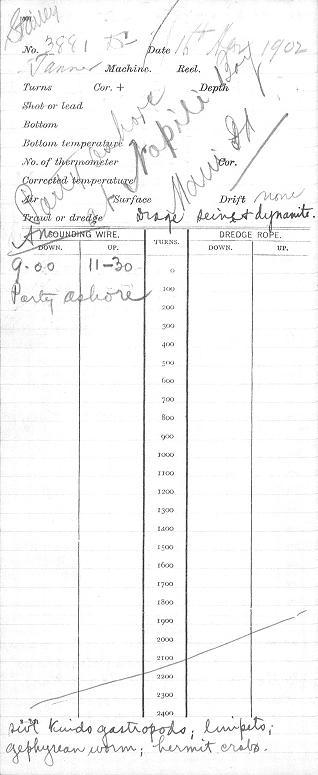 No. 3881 Date 16th 1902
Tanner Machine. Reel.
Turns Cor. + Depth
Shot or lead
Bottom
Bottom temperature
No. of thermometer Cor.
Corrected temperature
Air Surface Drift none
Trawl or dredge Seine & dynamite.
Party ashore
at Napili Bay
Maui Id
SOUNDING WIRE. TURNS. DREDGE ROPE.
DOWN. UP. DOWN. UP.
9-00 11-30 0
Party ashore 100
200
300
400
500
600
700
800
900
1000
1100
1200
1300
1400
1500
1600
1700
1800
1900
2000
2100
2200
2300
2400
kinds gastropods; limpets;
gephyrean worm; hermit crabs.